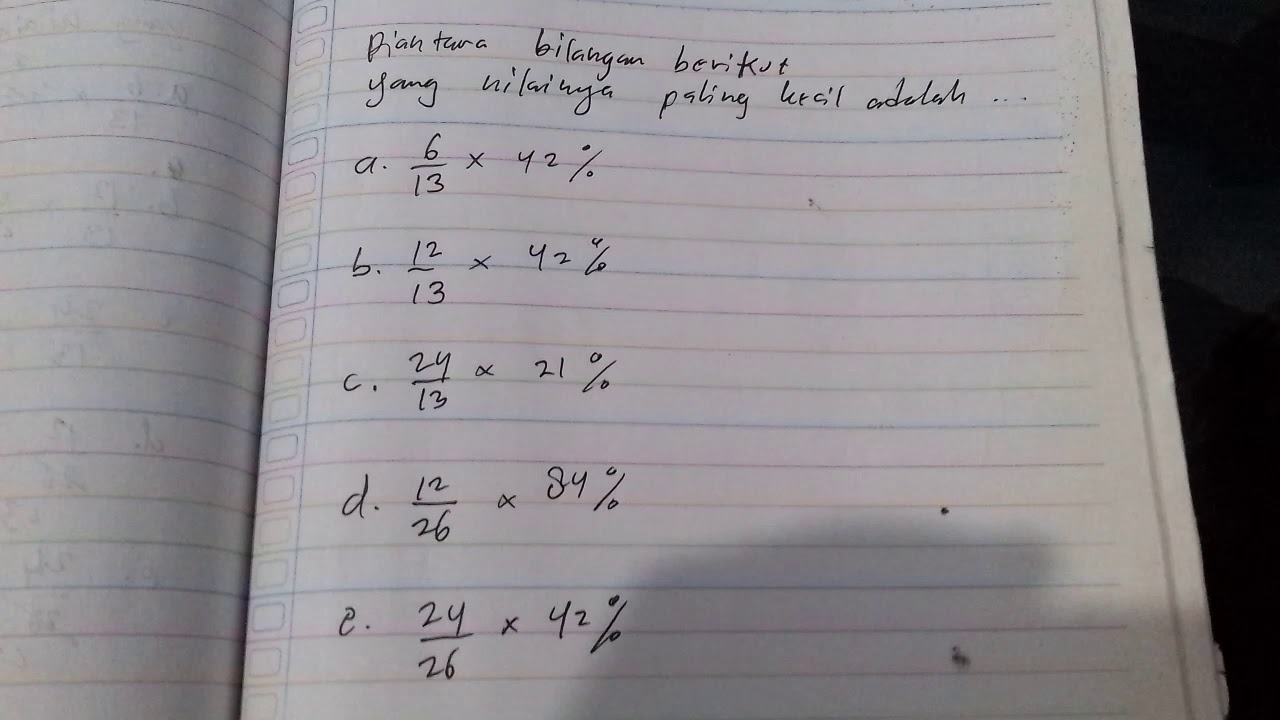 Diantara bilangan berikut
yang nilainya paling kecil adalah ...
a. 6/13 × 42%
b. 12/13 × 42%
c. 24/13 × 21%
d. 12/26 × 84%
e. 24/26 × 42%